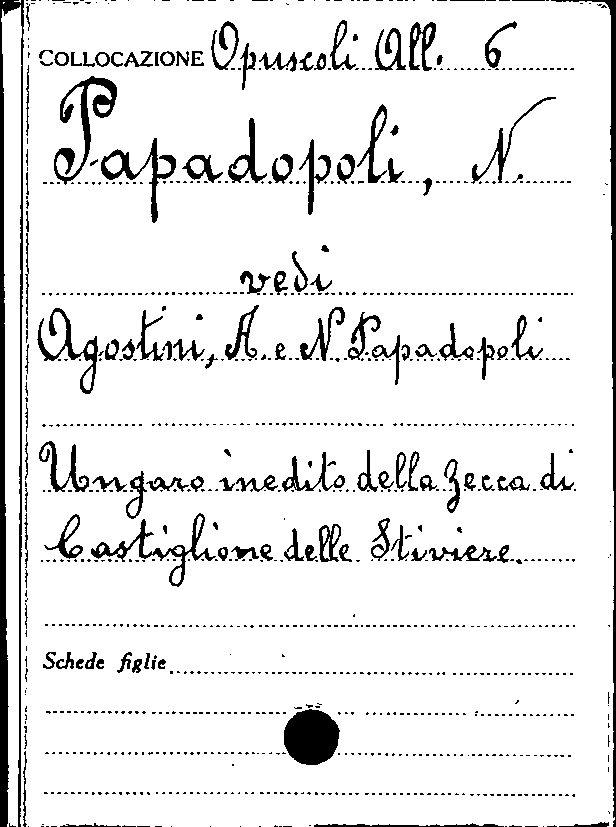 COLLOCAZIONE Opuscoli All. 6
Papadopoli, N.
vedi
Agostini, A. e N. Papadopoli
Ungaro inedito della Zecca di
Castiglione delle Stiviere.
Schede figlie